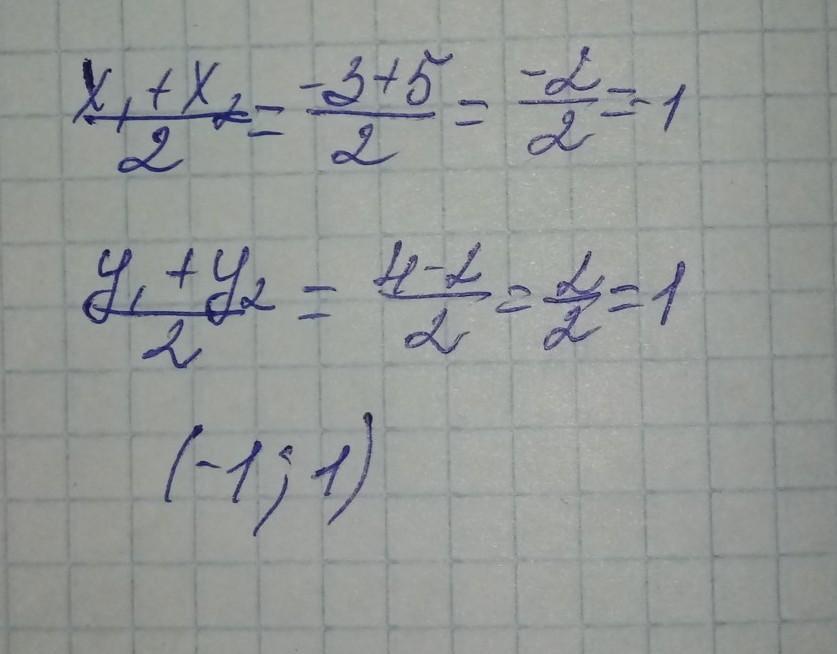 x₁+x₂/2 = -3+5/2 = -2/2 = -1
y₁+y₂/2 = 4-2/2 = 2/2 = 1
(-1; 1)